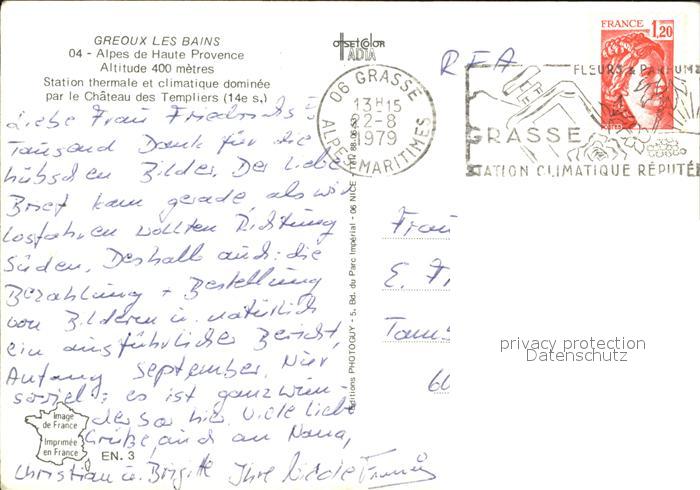 GREOUX LES BAINS
04 - Alpes de Haute Provence
Altitude 400 mètres
Station thermale et climatique dominée
par le Château des Templiers (14e s.)
OFFSET COLOR
ADIA
RFA
FRANCE 1,20
POSTES
06 GRASSE
13H15
22-8
1979
ALPES-MARITIMES
FLEURS & PARFUMS
GRASSE
STATION CLIMATIQUE RÉPUTÉE
Liebe Frau Friedrichs
Tausend Dank für die
hübschen Bilder. Der liebe
Brief kam gerade, als wir
losfahren wollten Richtung
Süden. Deshalb auch: die
Bezahlung + Bestellung
von Bildern u. natürlich
ein ausführlicher Bericht,
Anfang September. Nur
soviel: es ist ganz wun-
der bar hier. Viele liebe
Grüße, auch an Nana,
Christian u. Brigitte Ihre
Editions PHOTOGUY - 5, Bd. du Parc Impérial - 06 NICE
Frau
E. Fr
60
privacy protection
Datenschutz
Image
de France
Imprimée
en France
EN. 3